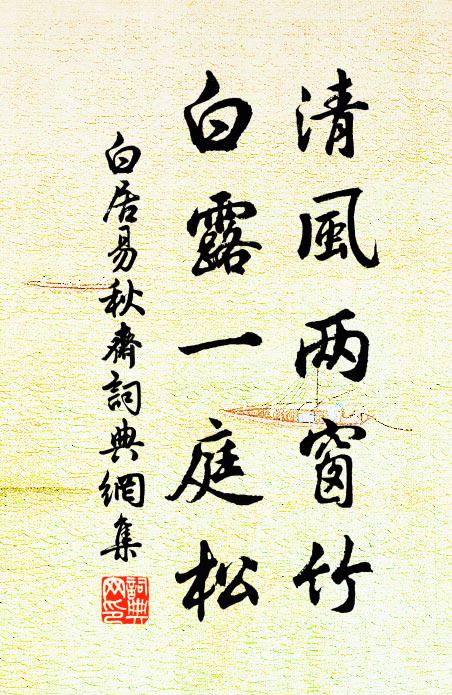 清風两窗竹
白露一庭松
白居易秋齋詞典網集
詞典
网印